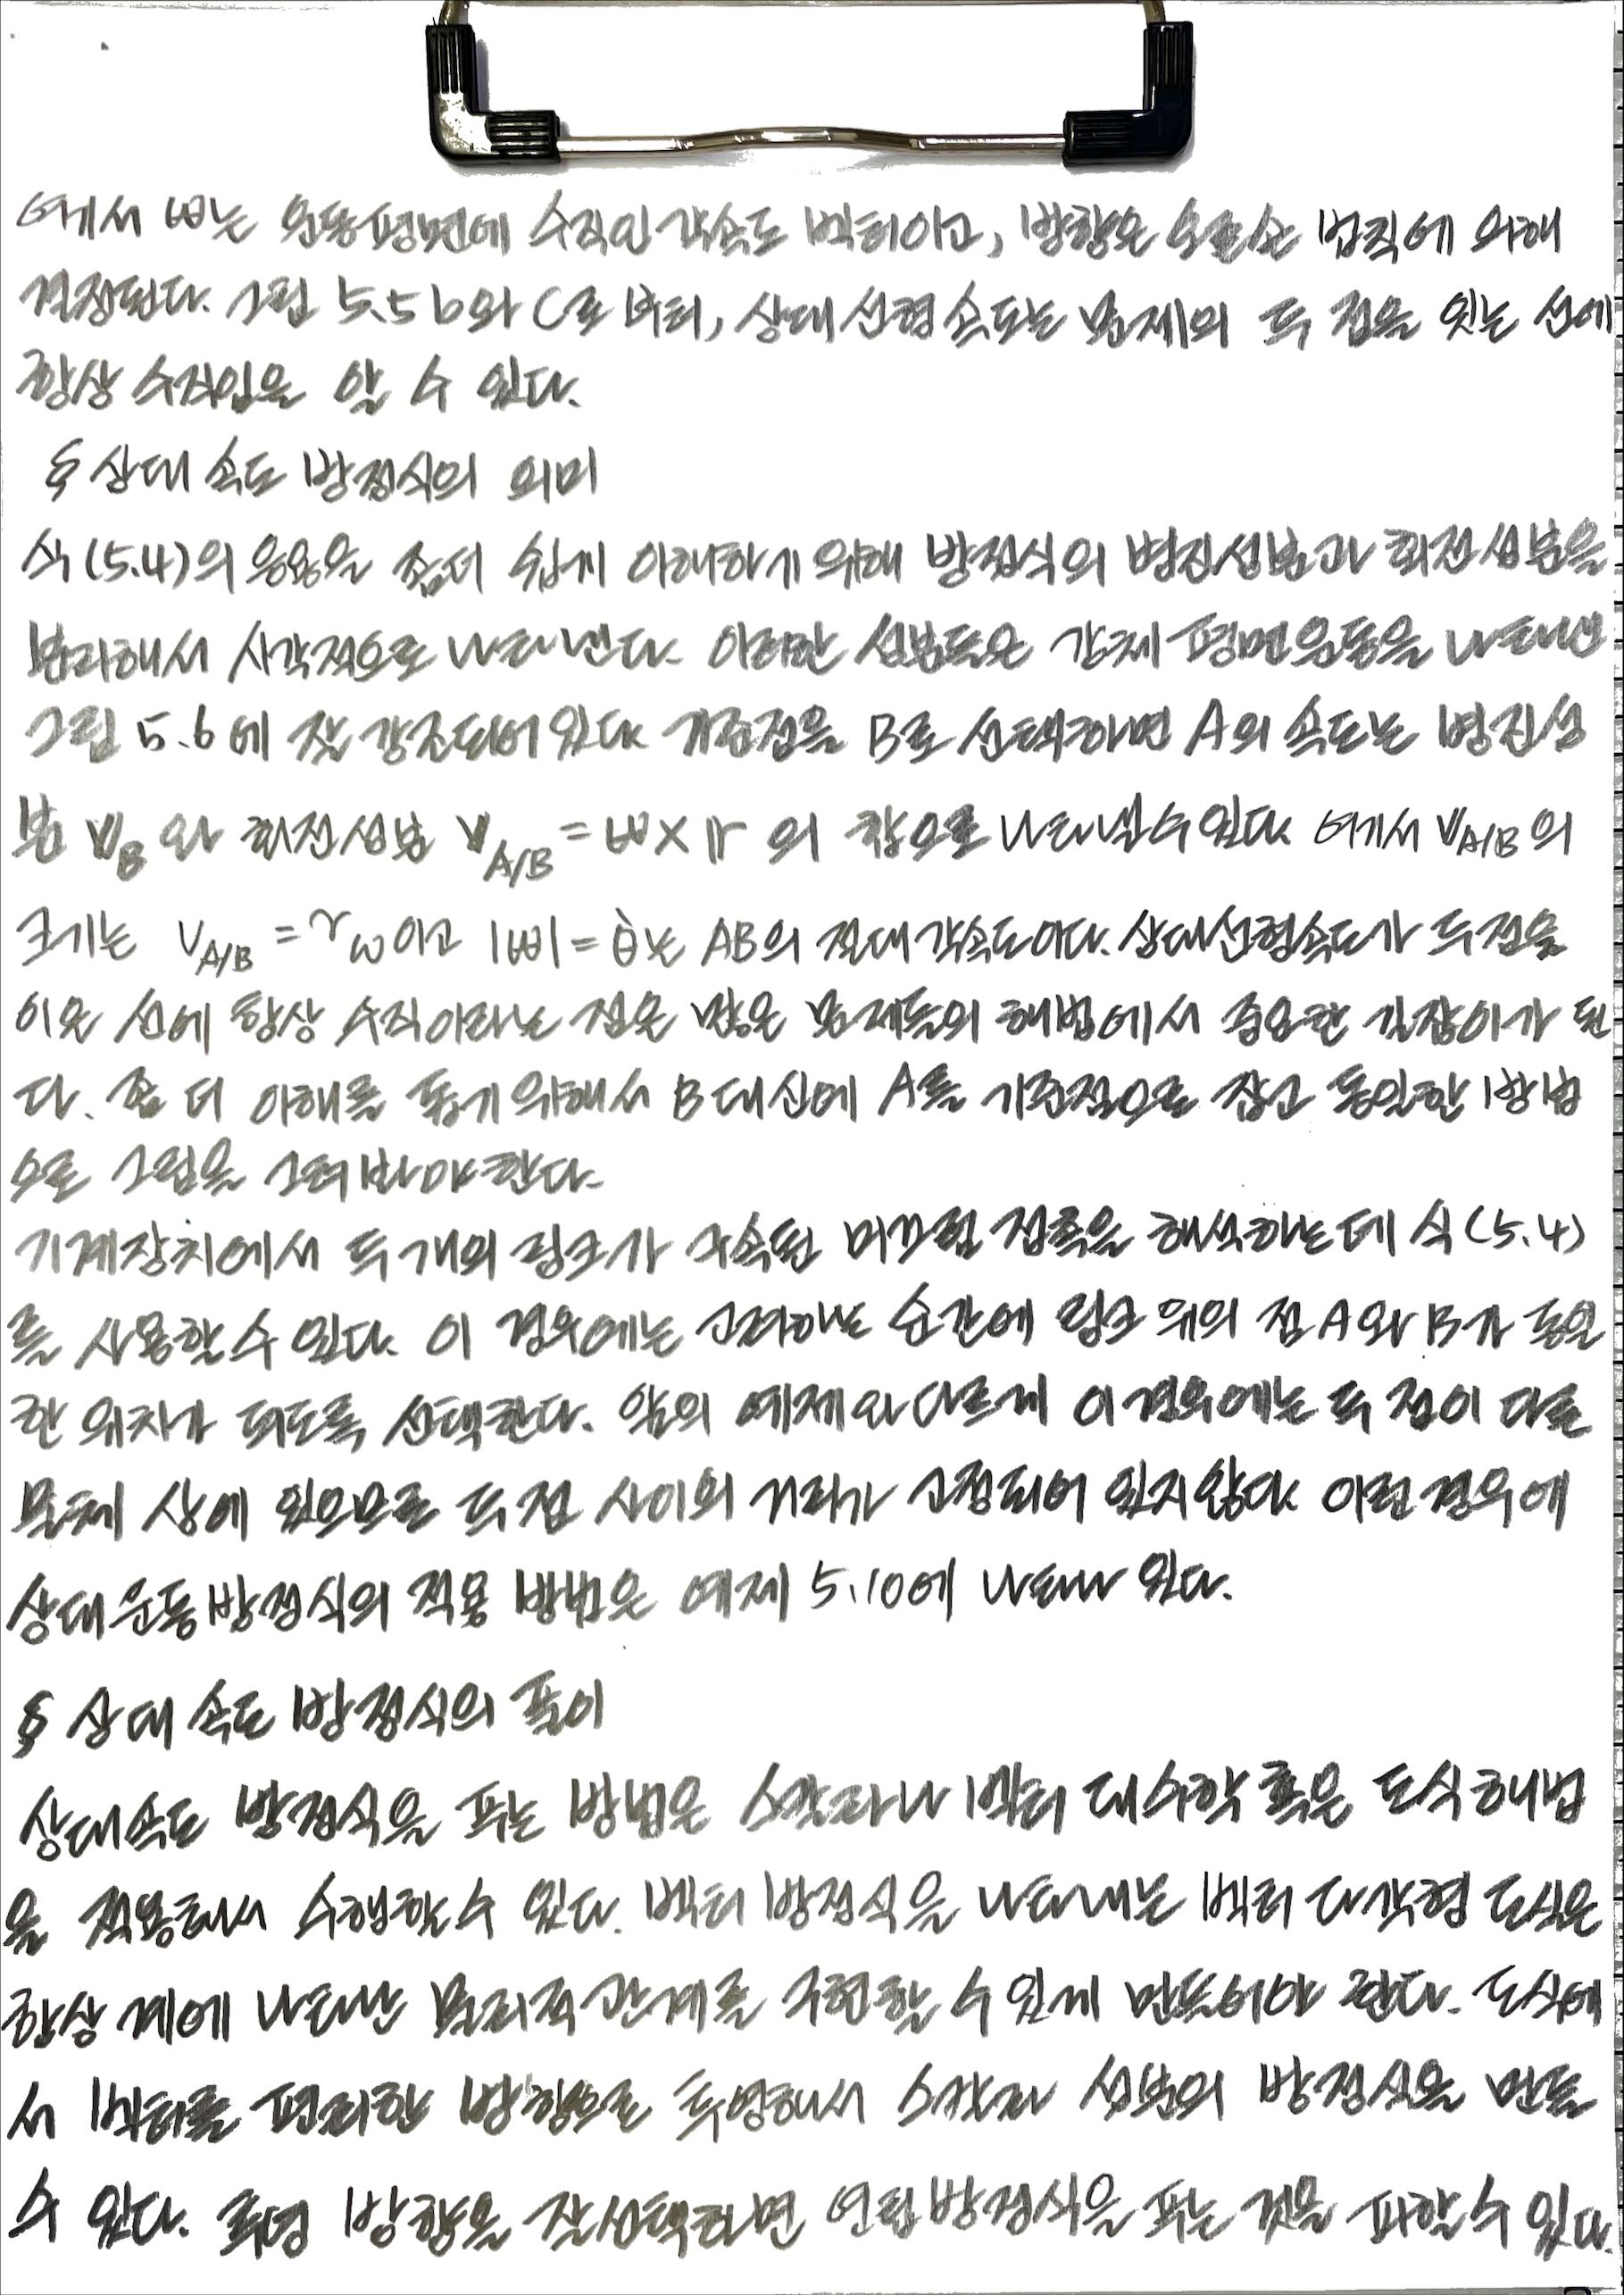 여기서 ω는 운동평면에 수직인 각속도 벡터이고, 방향은 오른손 법칙에 의해
결정된다. 그림 5.5 b와 c로 부터, 상대 선형 속도는 물체의 두 점을 잇는 선에
항상 수직임을 알 수 있다.
§ 상대 속도 방정식의 의미
식(5.4)의 응용을 좀더 쉽게 이해하기 위해 방정식의 병진성분과 회전성분을
분리해서 시각적으로 나타낸다. 이러한 성분들은 강체 평면운동을 나타낸
그림 5.6에 잘 강조되어 있다. 기준점을 B로 선택하면 A의 속도는 병진성
분 v_B 와 회전성분 v_A/B = ω × r 의 합으로 나타낼 수 있다. 여기서 v_A/B 의
크기는 v_A/B = rω이고 |ω| = θ̇는 AB의 절대각속도이다. 상대선형속도가 두점을
이은 선에 항상 수직이라는 점은 많은 문제들의 해법에서 중요한 길잡이가 된
다. 좀 더 이해를 돕기 위해서 B 대신에 A를 기준점으로 잡고 동일한 방법
으로 그림을 그려봐야 한다.
기계장치에서 두 개의 링크가 구속된 미끄럼 접촉을 해석하는데 식(5.4)
를 사용할 수 있다. 이 경우에는 고려하는 순간에 링크 위의 점 A와 B가 동일
한 위치가 되도록 선택한다. 앞의 예제와 다르게 이 경우에는 두 점이 다른
물체 상에 있으므로 두 점 사이의 거리가 고정되어 있지 않다. 이런 경우에
상대운동방정식의 적용 방법은 예제 5.10에 나타나 있다.
§ 상대 속도 방정식의 풀이
상대속도 방정식을 푸는 방법은 스칼라나 벡터 대수학 혹은 도식 해법
을 적용해서 수행할 수 있다. 벡터 방정식을 나타내는 벡터 다각형 도식은
항상 계에 나타난 물리적 관계를 구현할 수 있게 만들어야 한다. 도식에
서 벡터를 편리한 방향으로 투영해서 스칼라 성분의 방정식을 만들
수 있다. 투영 방향을 잘 선택하면 연립방정식을 푸는 것을 피할 수 있다.